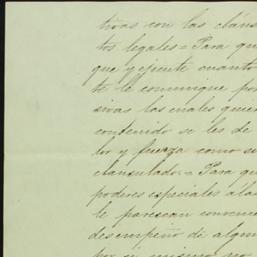 tivas con las cláus
tos legales = Para qu
que y ejecute cuanto
te le comunique por
sivas las cuales quier
contenido se les de
lor y fuerza como si
clausulado. = Para qu
poderes especiales á las
le parescan convenien
desempeño de algun
por si mismo no